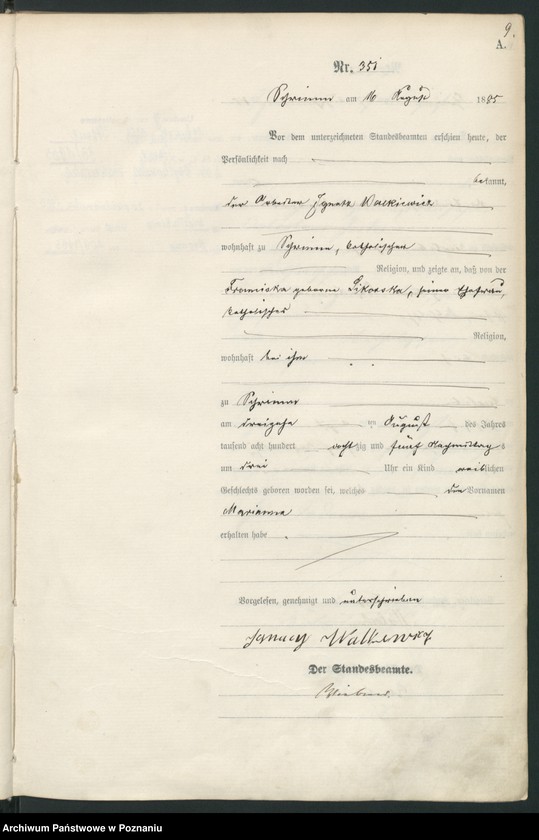 9.
A.
Nr. 351
Schrimm am 16 August 1885
Vor dem unterzeichneten Standesbeamten erschien heute, der
Persönlichkeit nach
bekannt,
der Arbeiter Ignatz Walkiewicz
wohnhaft zu Schrimm, katholischer
Religion, und zeigte an, daß von der
Franciska geborene Sikorska, seiner Ehefrau,
katholischer
Religion,
wohnhaft bei ihm
zu Schrimm
am dreizehn ten August des Jahres
tausend acht hundert achtzig und fünf Nachmittags
um drei Uhr ein Kind weiblichen
Geschlechts geboren worden sei, welches die Vornamen
Marianna
erhalten habe
Vorgelesen, genehmigt und unterschrieben
Ignacy Walkewicz
Der Standesbeamte.
Archiwum Państwowe w Poznaniu